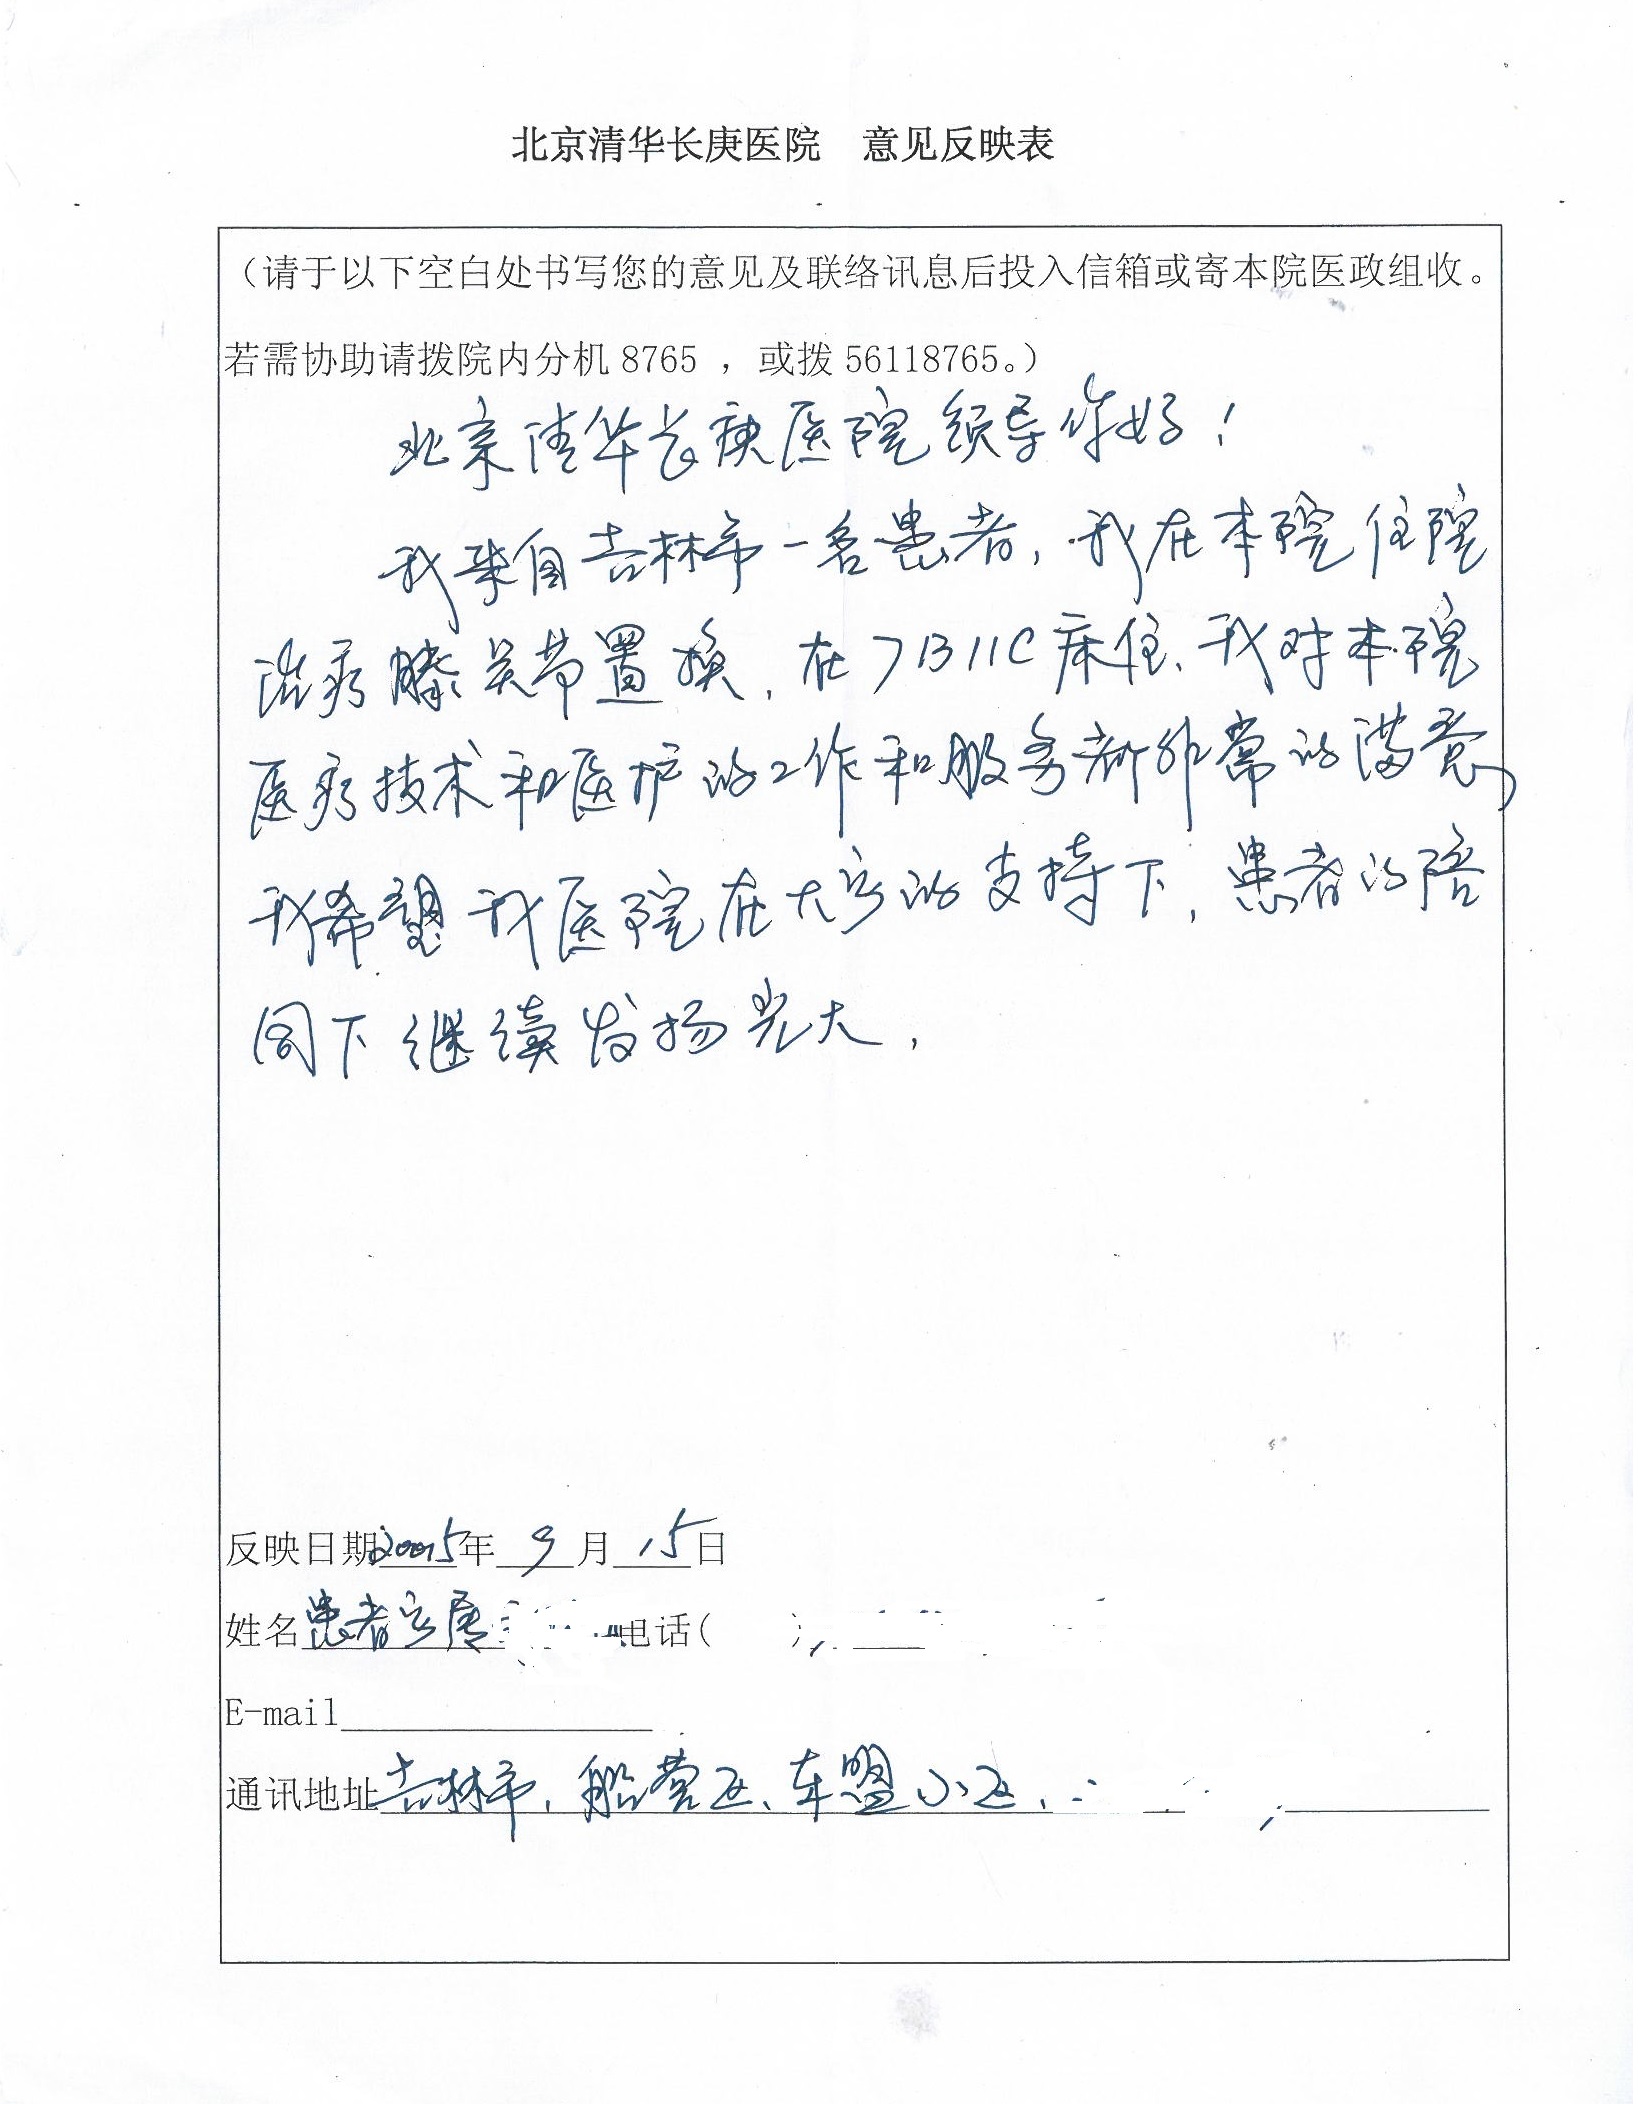 北京清华长庚医院 意见反映表
（请于以下空白处书写您的意见及联络讯息后投入信箱或寄本院医政组收。
若需协助请拨院内分机 8765 ，或拨 56118765。）
北京清华长庚医院领导你好！
我来自吉林市一名患者，我在本院住院
治疗膝关节置换，在7B11C床住、我对本院
医疗技术和医护的工作和服务都非常的满意，
我希望我医院在大家的支持下，患者的陪
同下继续发扬光大，
反映日期2005年 9 月 15日
姓名患者家属 电话( )
E-mail
通讯地址吉林市，船营区、车盟小区，